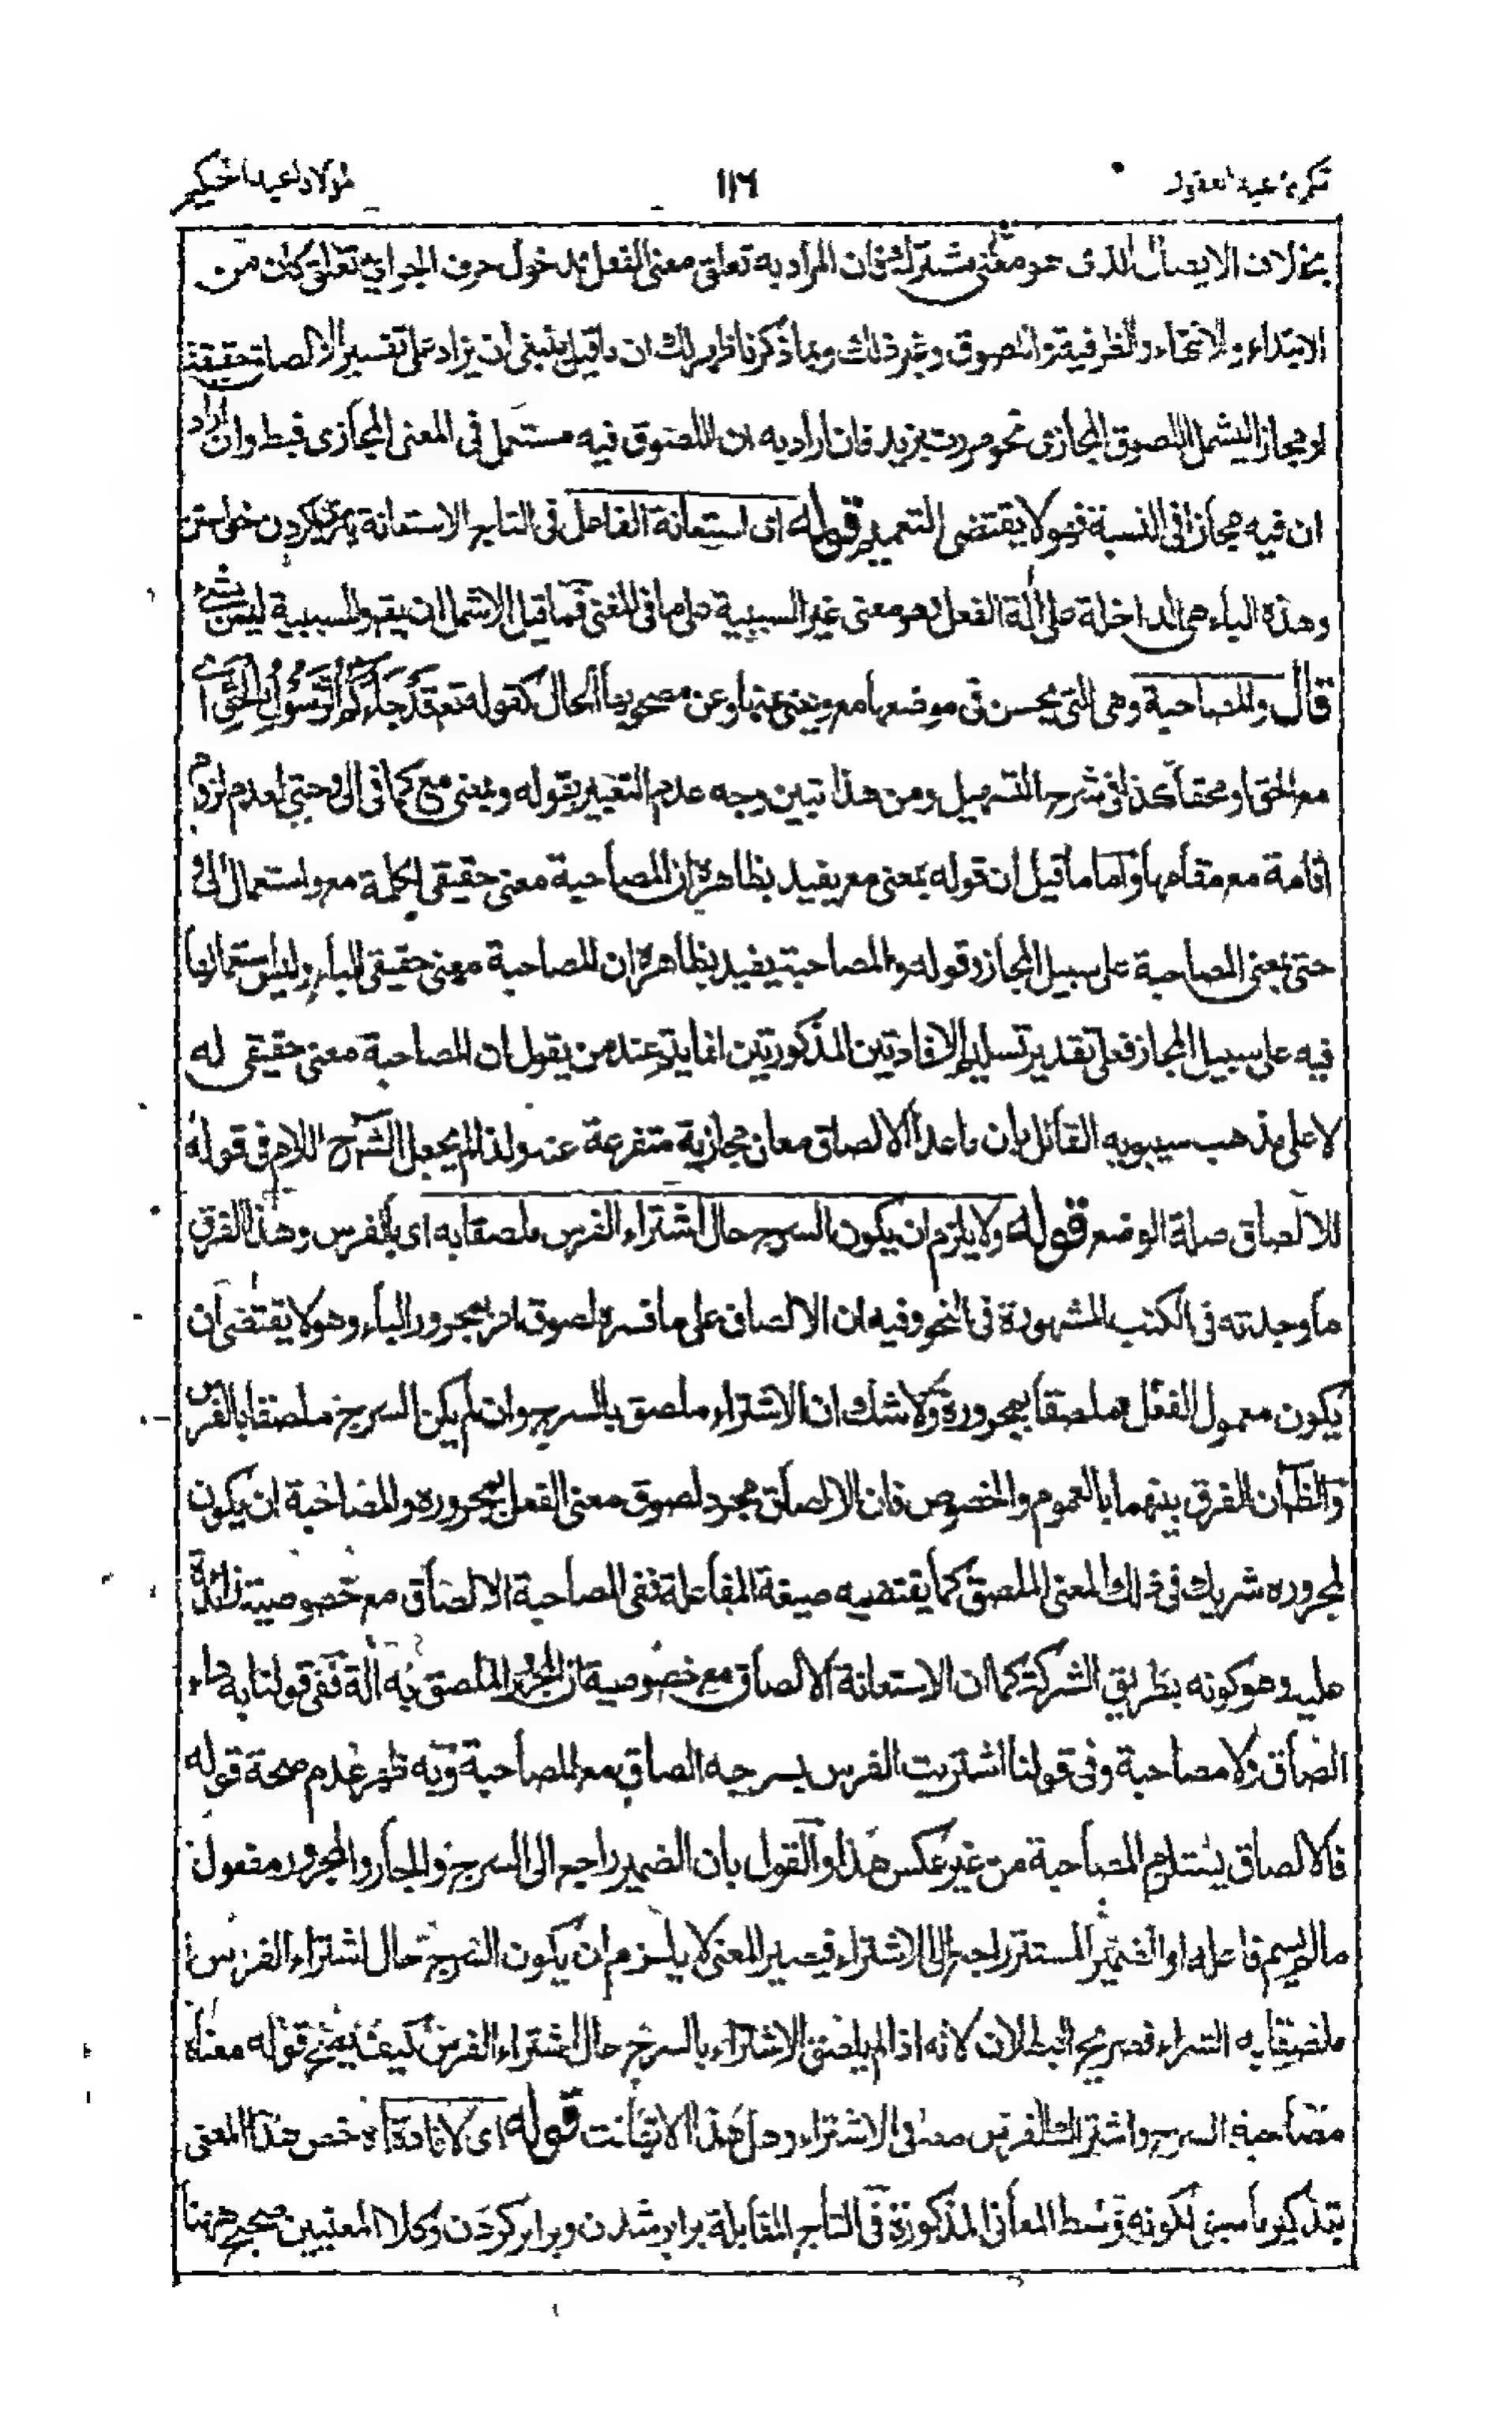 تكملة عبد الغفور ١١٦ مولانا عبد الحكيم
بخلاف الايصال الذى هو معنى مشترك فان المراد به تعلق معنى الفعل بمدخول حرف الجر اي تعلق كان من
الابتداء والانتهاء والظرفية واللصوق وغير ذلك وبما ذكرنا ظهر لك ان ما قيل ينبغى ان يزاد على تفسير الالصاق حقيقة
او مجازا ليشمل اللصوق المجازى نحو مررت بزيد فان اراد به ان اللصوق فيه مستعمل فى المعنى المجازى فبط وان اراد
ان فيه مجازا فى النسبة فهو لا يقتضى التعميم قوله اى استعانة الفاعل فى التاج الاستعانة يارى كردن خواستن
وهذه الباء هى الداخلة على آلة الفعل وهو معنى غير السببية على ما فى المغنى فما قيل الاشمل ان يقو والسببية ليس بشئ
قال والمصاحبة وهى التى يحسن فى موضعها مع ويغنى عنها وعن مصحوبها الحال كقوله تع قد جاءكم الرسول بالحق اى
مع الحق او محقا كذا فى شرح التسهيل ومن هذا تبين وجه عدم التعبير بقوله وبمعنى مع كما فى الى وحتى لعدم لزوم
اقامة مع مقامها واما ما قيل ان قوله بمعنى مع يفيد بظاهره ان المصاحبة معنى حقيقى لكلمة مع واستعمال الى و
حتى بمعنى المصاحبة على سبيل المجاز وقوله والمصاحبة يفيد بظاهره ان المصاحبة معنى حقيقى للباء وليس استعمالها
فيه على سبيل المجاز فعلى تقدير تسليم الافادتين المذكورتين انما يتم عند من يقول ان المصاحبة معنى حقيقى له
لا على مذهب سيبويه القائل بان ما عدا الالصاق معان مجازية متفرعة عنه ولذا لم يجعل الشرح اللام فى قوله
للالصاق صلة الوضع قوله ولا يلزم ان يكون السرج حال اشتراء الفرس ملصقا به اى بالفرس وهذا الفرق
ما وجدته فى الكتب المشهورة فى النحو وفيه ان الالصاق على ما فسره لصوق امر بمجرور الباء وهو لا يقتضى ان
يكون معمول الفعل ملصقا بمجروره ولا شك ان الاشتراء ملصق بالسرج وان لم يكن السرج ملصقا بالفرس
والظ ان الفرق بينهما بالعموم والخصوص فان الالصاق مجرد لصوق معنى الفعل بمجروره والمصاحبة ان يكون
لمجروره شريك فى ذلك المعنى الملصق كما يقتضيه صيغة المفاعلة ففى المصاحبة الالصاق مع خصوصية زائدة
عليه وهو كونه بطريق الشركة كما ان الاستعانة الالصاق مع خصوصية ان المجرور الملصق به آلة ففى قولنا به داء
الصاق ولا مصاحبة وفى قولنا اشتريت الفرس بسرجه الصاق مع المصاحبة وبه ظهر عدم صحة قوله
فالالصاق يستلزم المصاحبة من غير عكس هذا والقول بان الضمير راجع الى السرج والجار والمجرور مفعول
ما لم يسم فاعله او الضمير المستتر راجع الى الاشتراء فيصير المعنى لا يلزم ان يكون السرج حال اشتراء الفرس
ملصقا به الشراء فصريح البطلان لانه اذا لم يلصق الاشتراء بالسرج حال اشتراء الفرس كيف يصح قوله معناه
مصاحبة السرج واشتراك الفرس معه فى الاشتراء وهل هذا الا تهافت قوله اى لافادة اه خص هذا المعنى
بتذكير ما سبق لكونه وسط المعانى المذكورة فى التاج المقابلة برابر شدن وبرابر كردن وكلا المعنيين صحيح ههنا